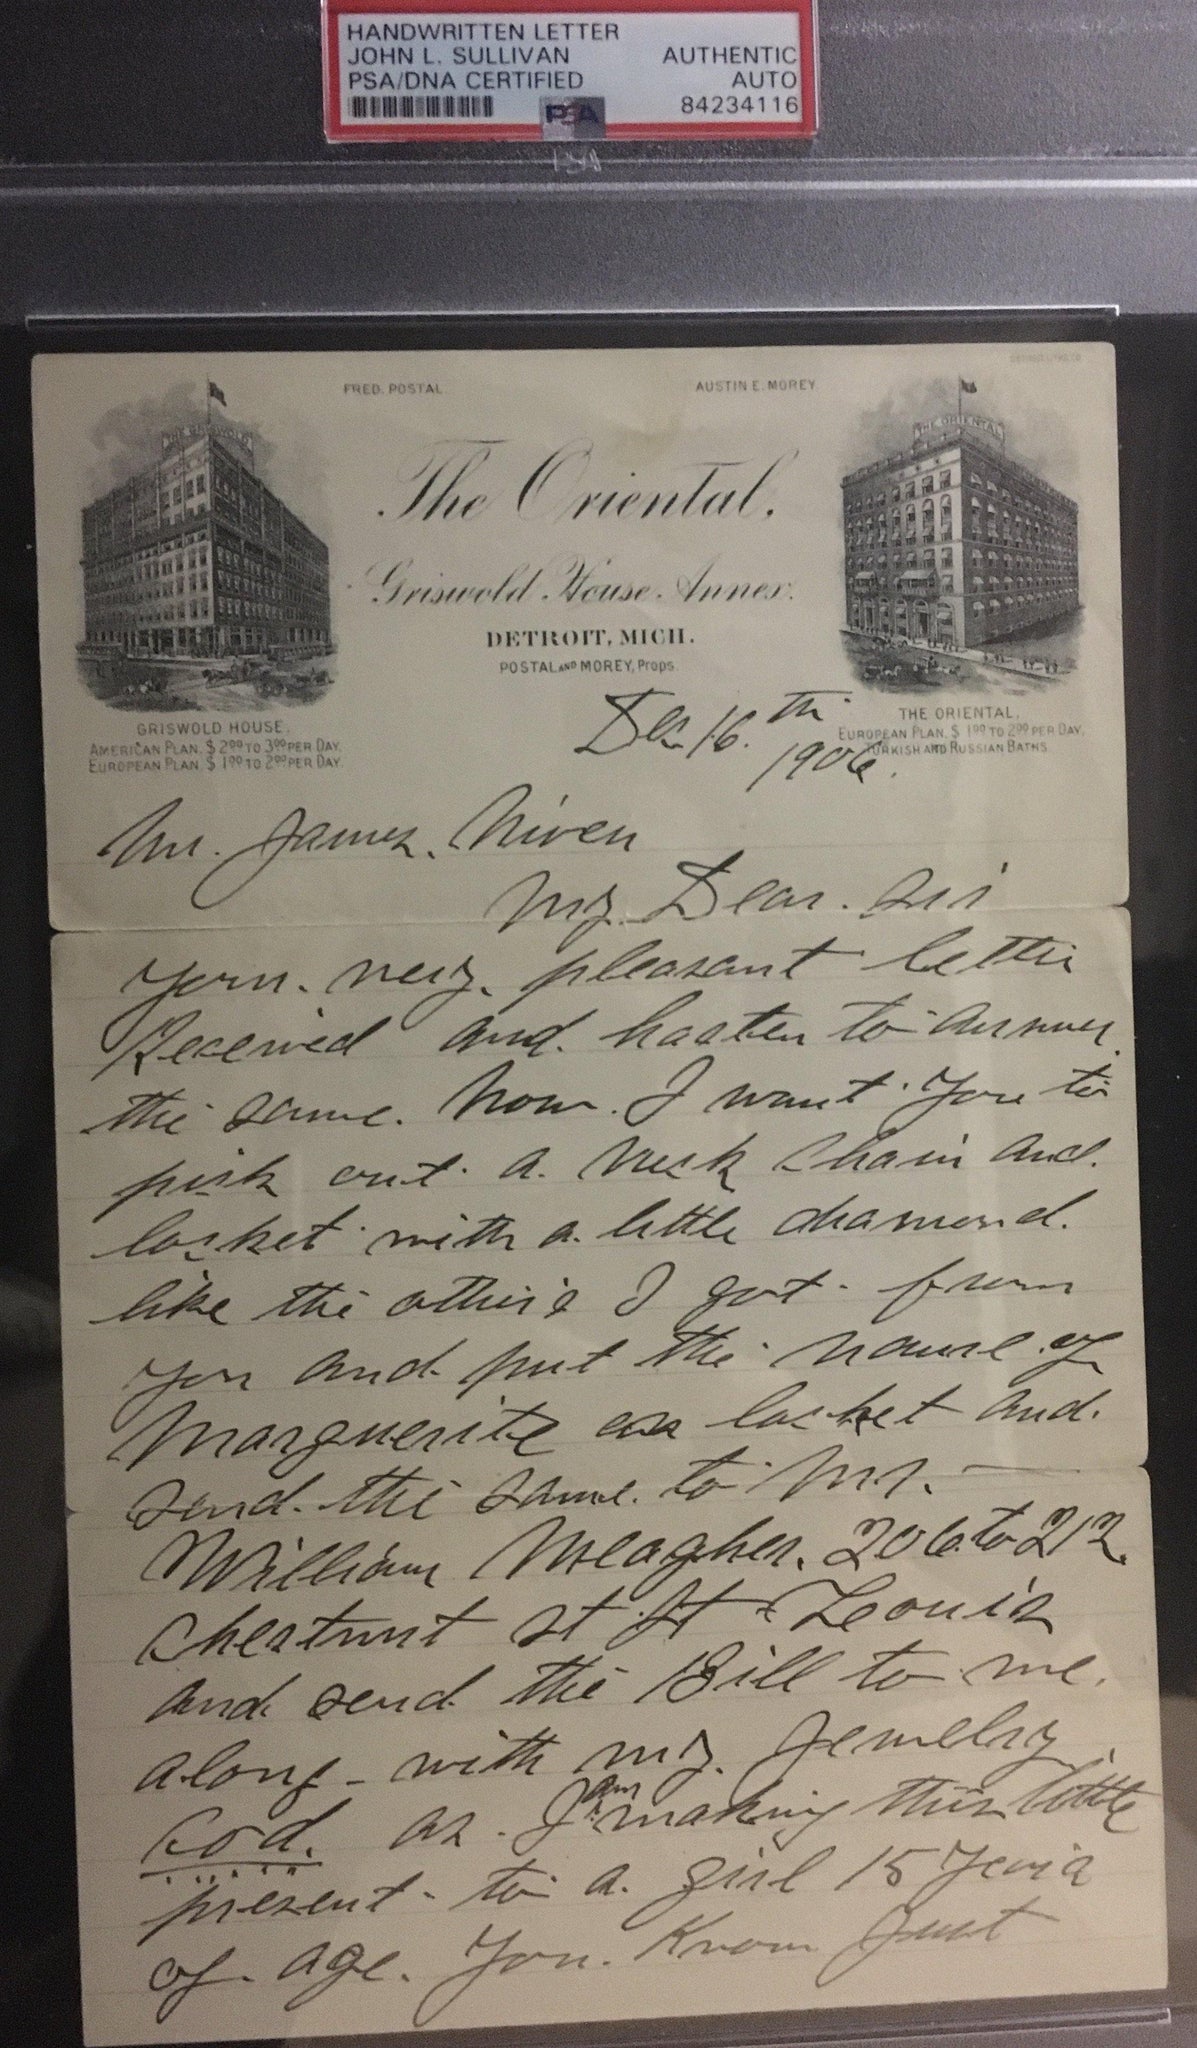 HANDWRITTEN LETTER
JOHN L. SULLIVAN AUTHENTIC
PSA/DNA CERTIFIED AUTO
PSA 84234116
FRED. POSTAL. AUSTIN E. MOREY
THE GRISWOLD
THE ORIENTAL
The Oriental.
Griswold House Annex.
DETROIT, MICH.
POSTAL AND MOREY, Props.
GRISWOLD HOUSE.
AMERICAN PLAN. $2.00 TO 3.00 PER DAY.
EUROPEAN PLAN. $1.00 TO 2.00 PER DAY.
THE ORIENTAL.
EUROPEAN PLAN. $1.00 TO 2.00 PER DAY.
TURKISH AND RUSSIAN BATHS.
Dec 16.th
1906.
Mr. James. Niven
My. Dear. Sir
Your. very. pleasant letter
Received and. hasten to answer.
the same. Now. I want You to
pick out a. neck chain and.
locket with a. little diamond.
like the others I got from
you and put the name of
Marguerite on locket and.
send. the same. to Mr.
William Meagher. 206 to 212.
Chestnut st St Louis
and send the Bill to me.
along with my Jewelry
Cod. as. I am making this little
present to a. girl 15 years
of. age. You. Know just